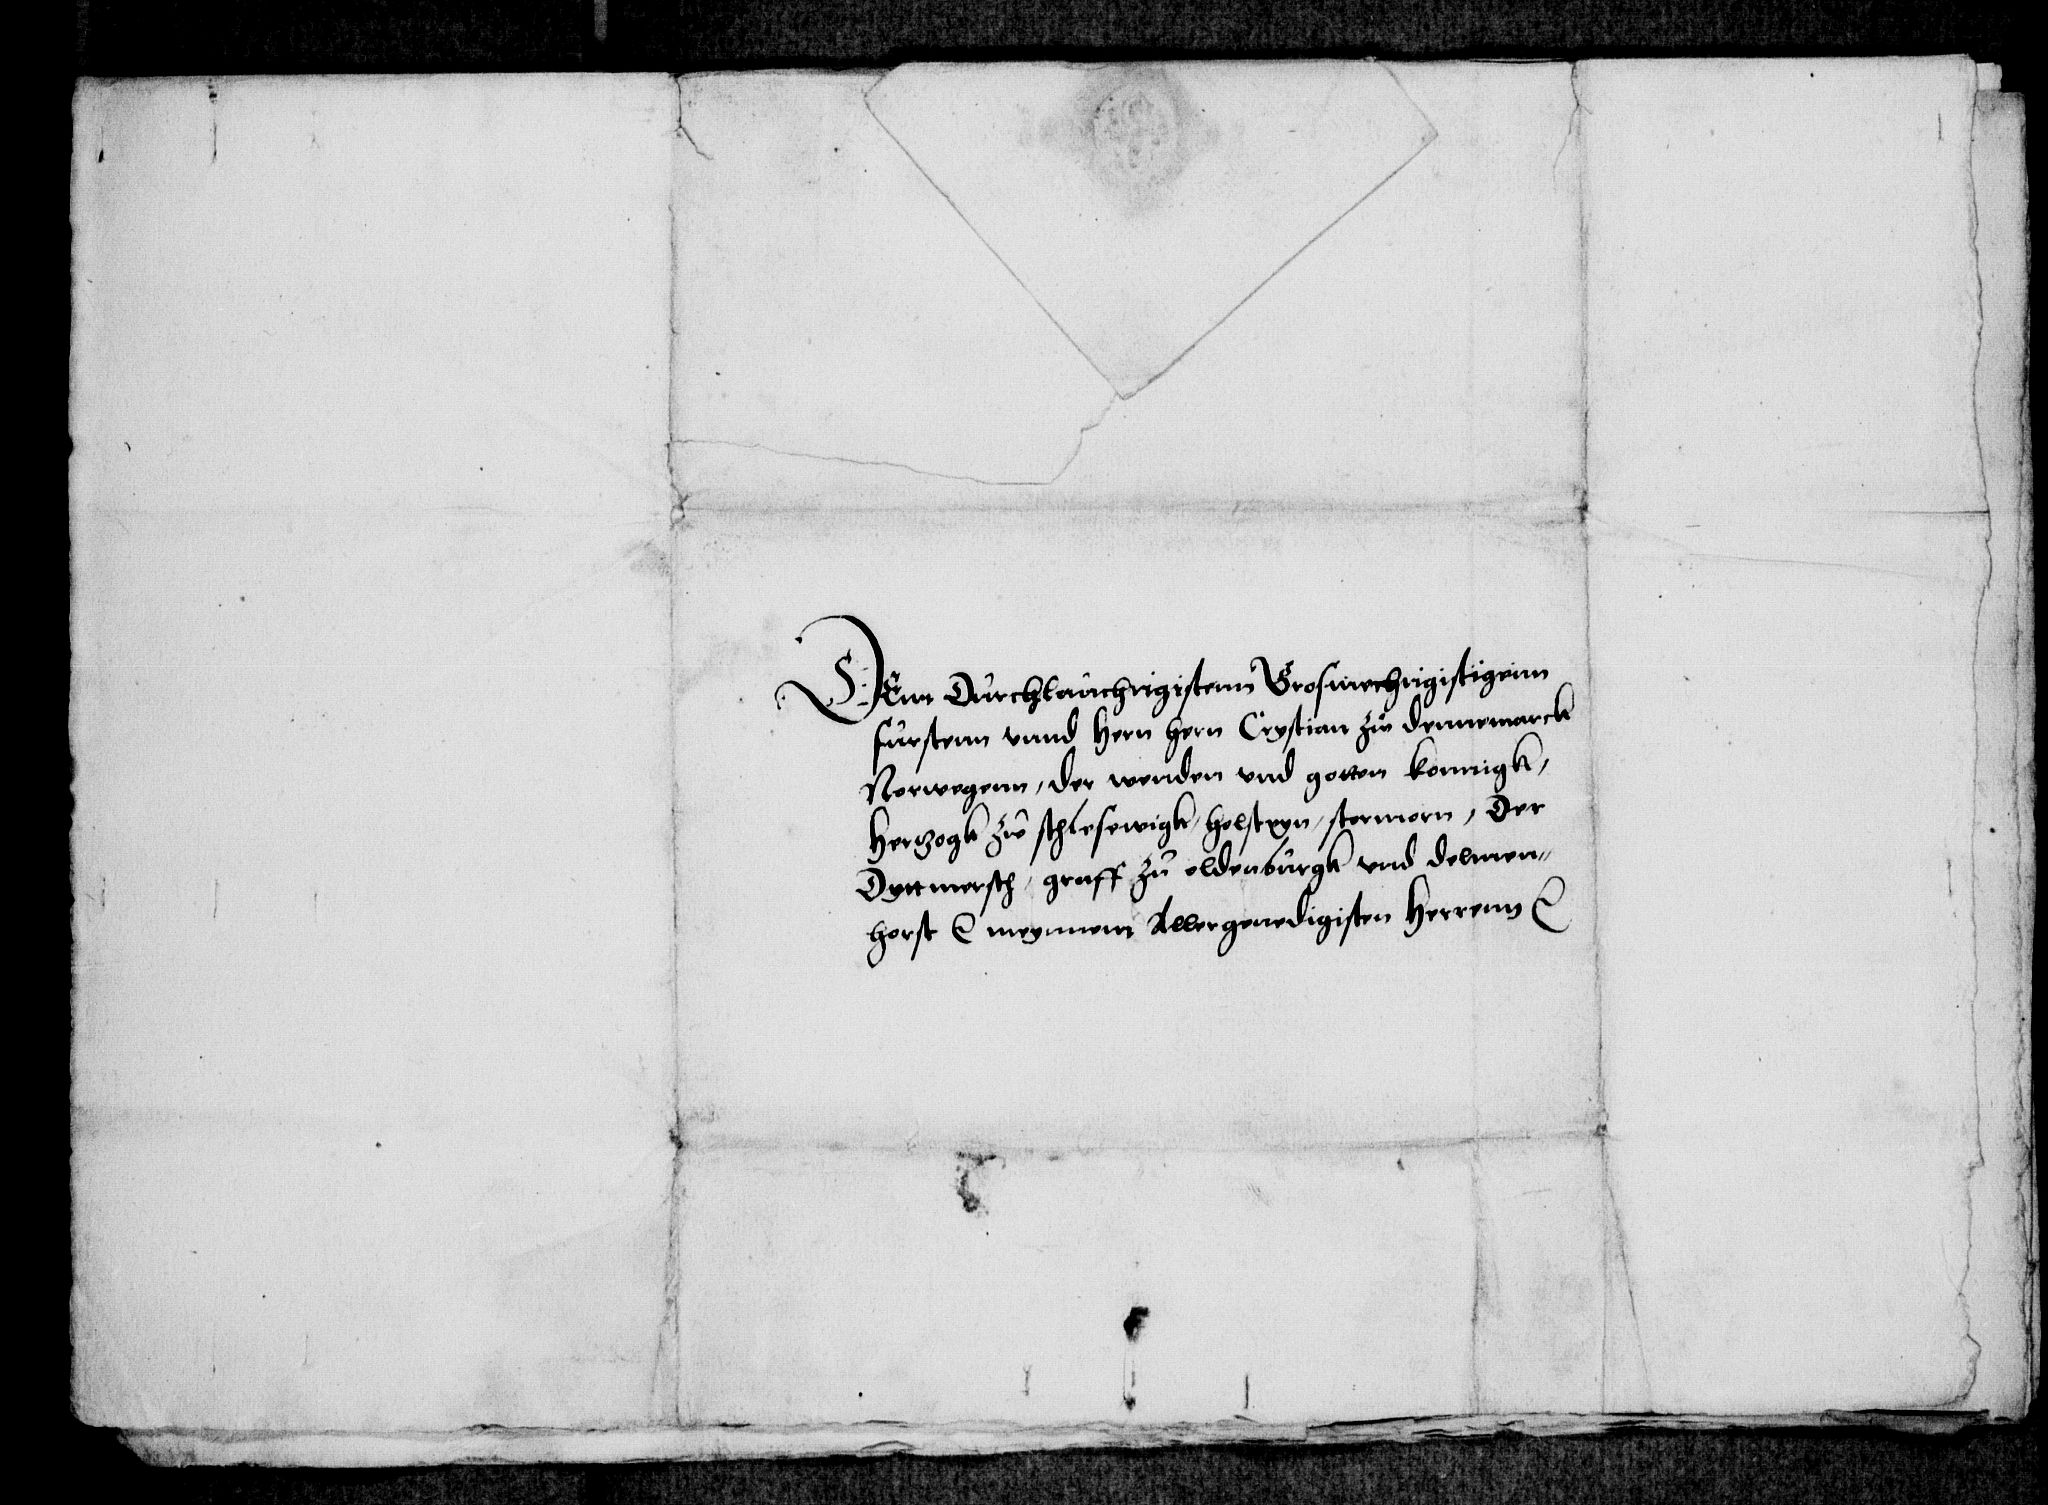 DEm Durchlauchtigistenn Grosmechtigistigenn
furstenn vnnd Hern hern Crystian zw dennemarck
Norwegenn, der wenden vnd gotten konnigk,
Hertzogk zw schlesewigk, holsteyn, stormorn, Der
Dyttmersch, graff zu oldenburgk vnd delmen„
horst & meynnem Allergenedigisten Herrenn &